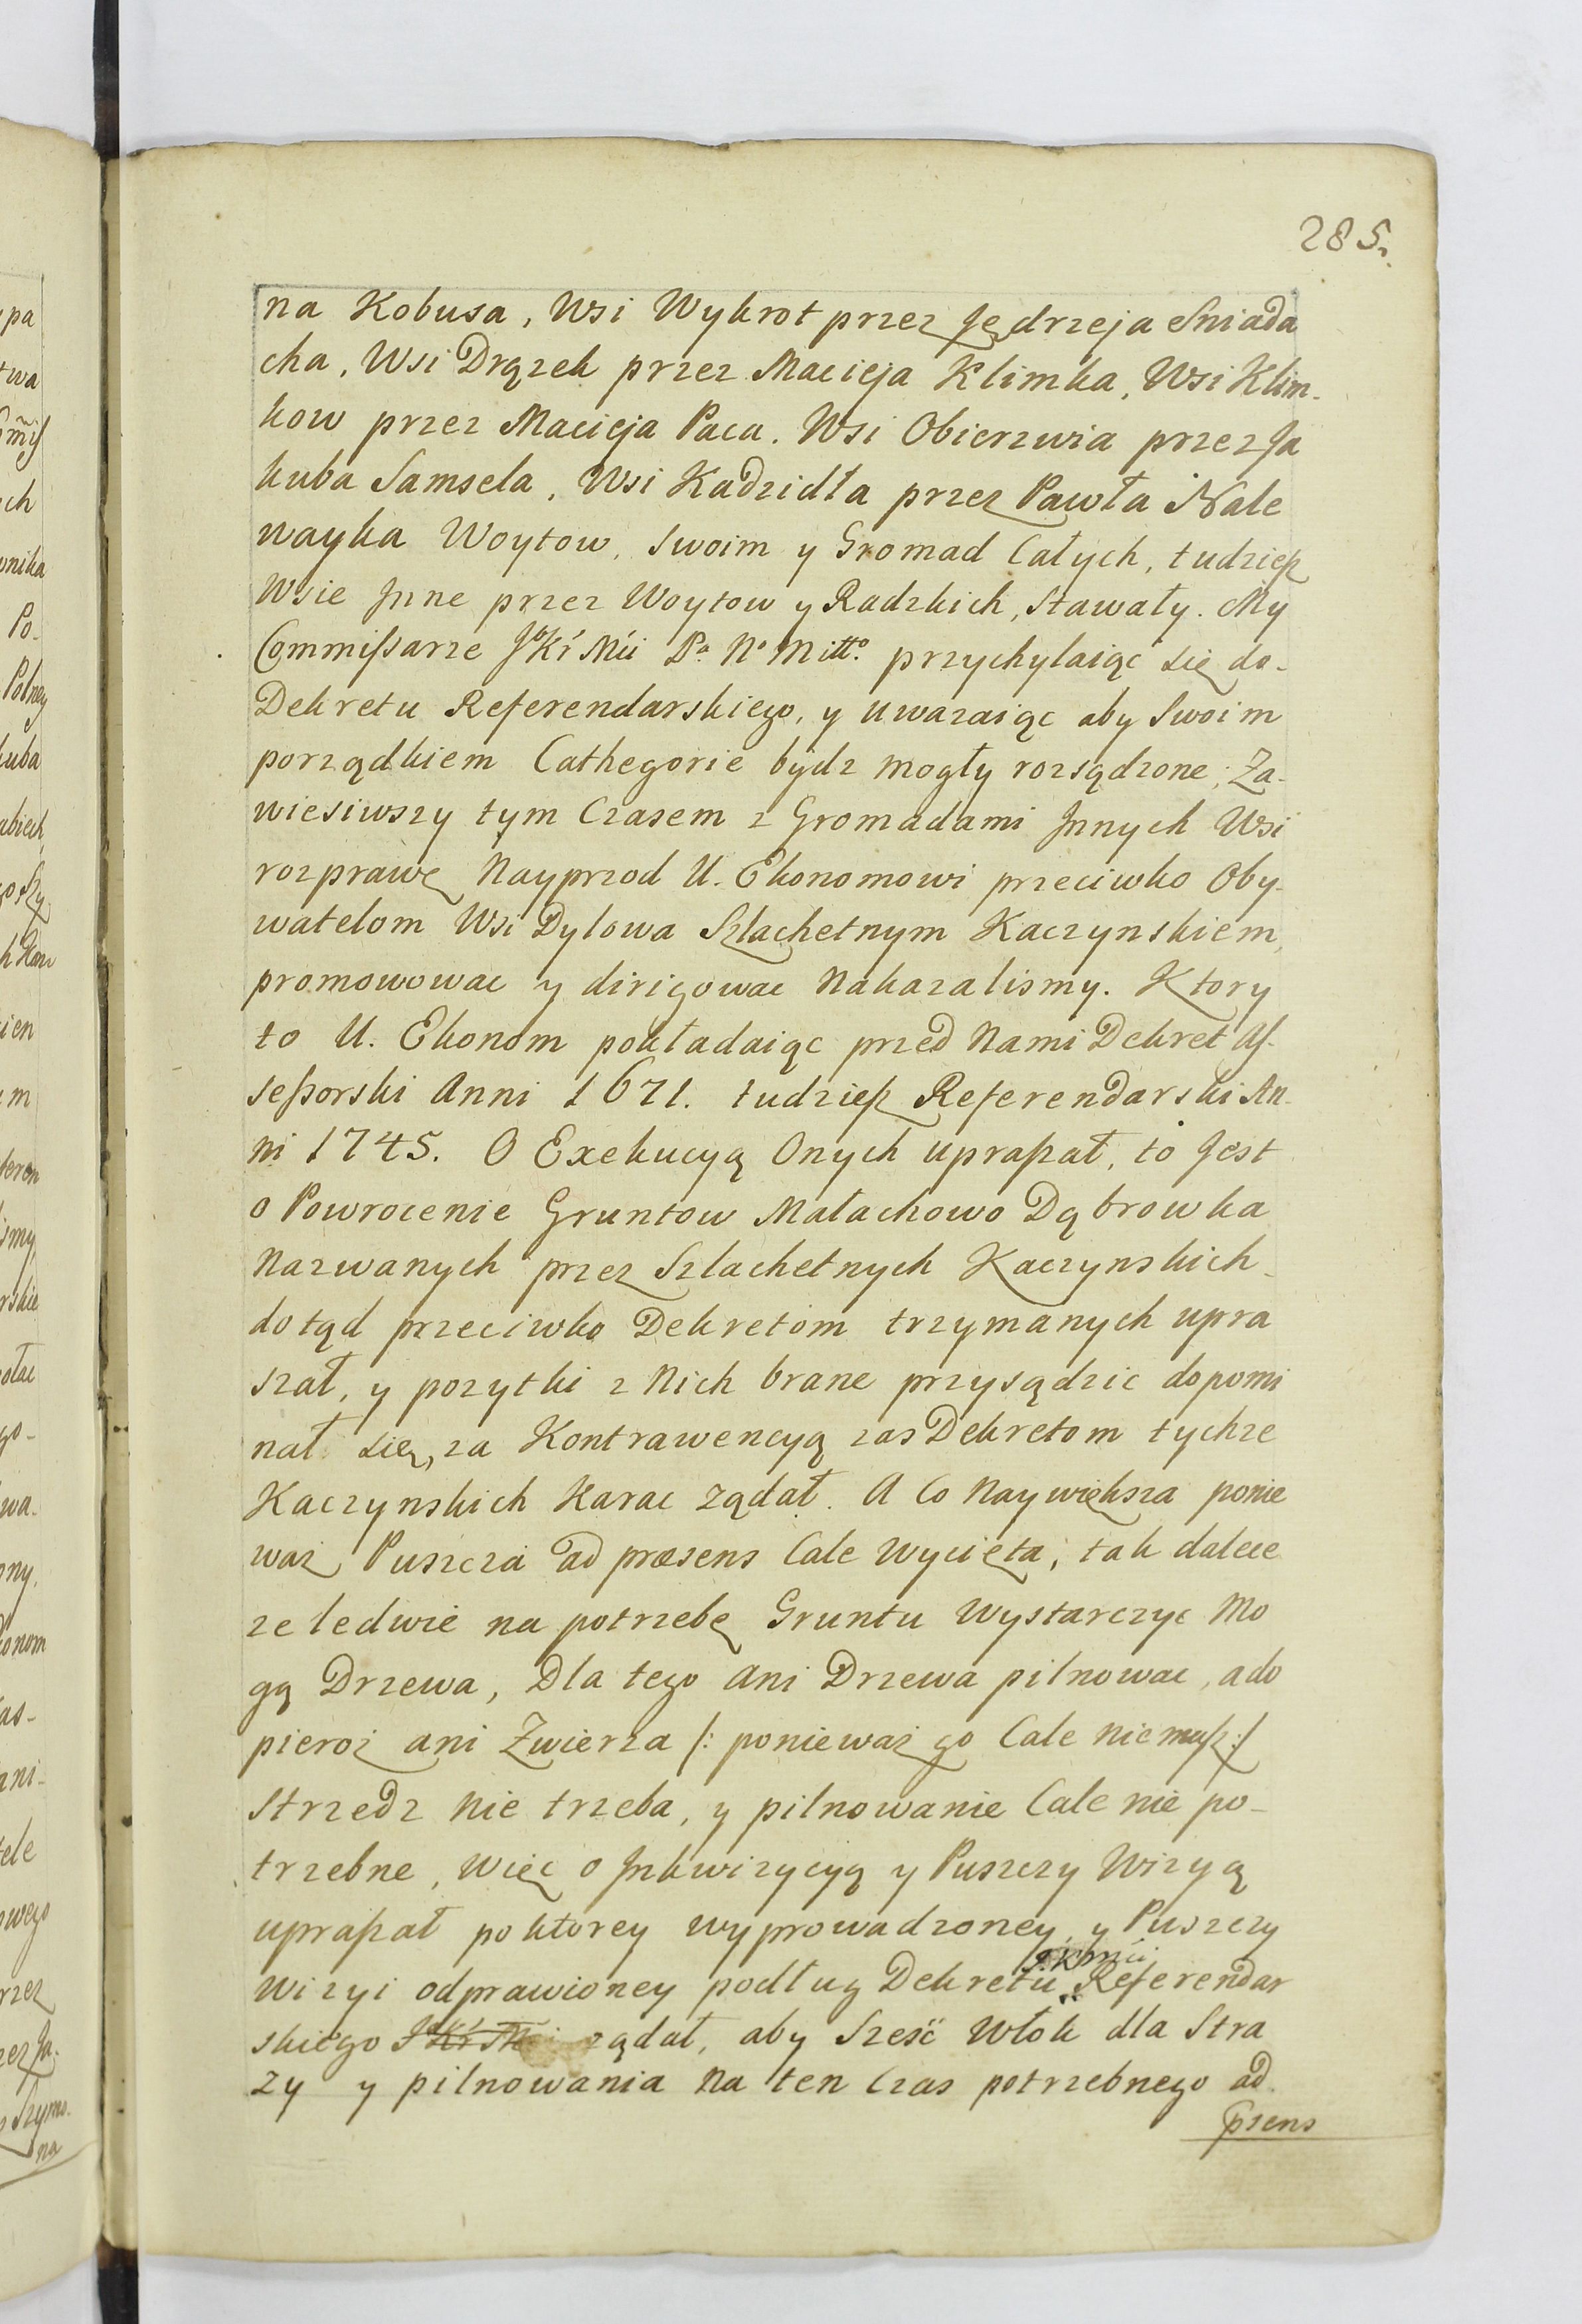 285.
na Kobusa, Wsi Wykrot przez Jędrzeja Sniada
cha, Wsi Drązek przez Macieja Klimka, Wsi Klim-
kow przez Macieja Paca. Wsi Obierzwia przez Ja
kuba Samsela, Wsi Kadzidła przez Pawła Nale
wayka Woytow, swoim y Gromad Całych, tudzieß
Wsie Jnne przez Woytow y Radzkich, stawały. My
Commißarze JKr Mći Pa No Mitto. przychylaiąc się do-
Dekretu Referendarskiego, y uwazaiąc aby Swoim
porządkiem Cathegorie bydz mogły rozsądzone, Za-
wiesiwszy tym Czasem z Gromadami Jnnych Wsi
rozprawę Nayprzod U. Ekonomowi przeciwko Oby-
watelom Wsi Dylowa Szlachetnym Kaczynskiem,
promowowac y dirigowac Nakazalismy. Ktory
to U. Ekonom pokładaiąc przed Nami Dekret Aſ-
seßorski Anni 1671. tudzieß Referendarski An-
ni 1745. O Exekucyą Onych upraßał, to Jest
o Powrocenie Gruntow Małachowo Dąbrowka
Nazwanych przez Szlachetnych Kaczynskich
dotąd przeciwko Dekretom trzymanych upra
szał, y pozytki z Nich brane przysądzic dopomi
nał się, za Kontrawencyą zas Dekretom tychze
Kaczynskich Karac ządał. A Co Naywiększa ponie
waz Puszcza ad præsens Cale Wycięta, tak dalece
ze ledwie na potrzebę Gruntu Wystarczyc Mo
gą Drzewa, Dla tego Ani Drzewa pilnowac, a do
pieroż ani Zwierza /: poniewaz go Cale niemaß :/
Strzedz nie trzeba, y pilnowanie Cale nie po-
trzebne, Więc o Jnkwizycyą y Puszczy Wizyą
upraßał po ktorey wyprowadzoney, y Puszczy
J.K.Mći
Wizyi odprawioney podług Dekretu Referendar
skiego JKr Mći ządał, aby Sześć Włok dla Stra
zy y pilnowania Na ten Czas potrzebnego ad
przens